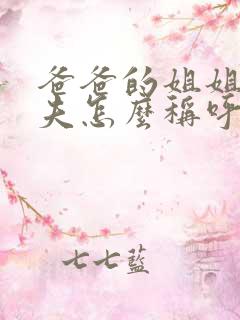 爸爸的姐姐
夫怎麼稱呼
七七藍